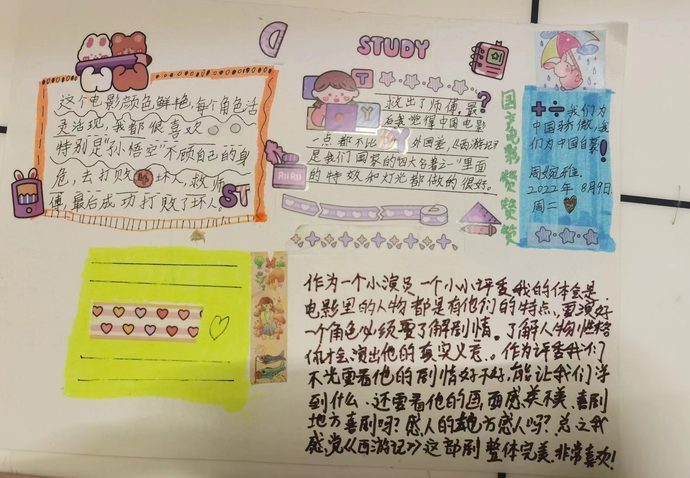 这个电影颜色鲜艳，每个角色活
灵活现，我都很喜欢
特别是"孙悟空"不顾自己的身
危，去打败坏人，救师
傅，最后成功打败了坏人。
ST
STUDY
T
救出了师傅。最
后我觉得中国电影
一点都不比外国差，《西游记》
是我们国家的四大名著之一"里面
的特效和灯光都做的很好。
国产电影赞赞赞
我们为
中国骄傲，我
们为中国自豪！
周婉雅
2022年8月9日
周二
作为一个小演员一个小小评委我的体会是
电影里的人物都是有他们的特点，要演好
一个角色必须要了解剧情。了解人物性格
你才会演出他的真实义意。作为评委我们
不光要看他的剧情好不好，能让我们学
到什么，还要看他的画面感，美不美，喜剧
地方喜剧吗？感人的地方感人吗？总之我
感觉《西游记》这部剧整体完美，非常喜欢！